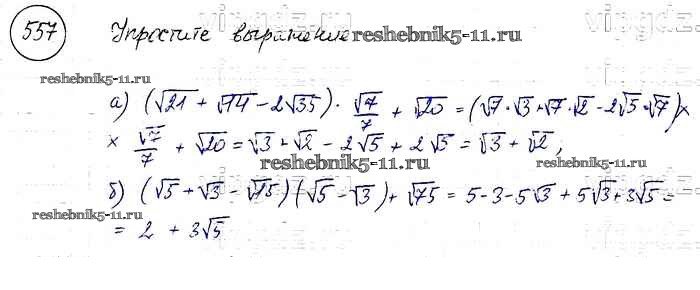 vipgdz.ru
557 Упростите выражение reshebnik5-11.ru
reshebnik5-11.ru
а) (√21 + √14 - 2√35) · √7/7 + √20 = (√7·√3 + √7·√2 - 2√5·√7) ×
× √7/7 + √20 = √3 + √2 - 2√5 + 2√5 = √3 + √2;
reshebnik5-11.ru
б) (√5 + √3 - √15)(√5 - √3) + √75 = 5-3-5√3 + 5√3 + 3√5 =
reshebnik5-11.ru
= 2 + 3√5